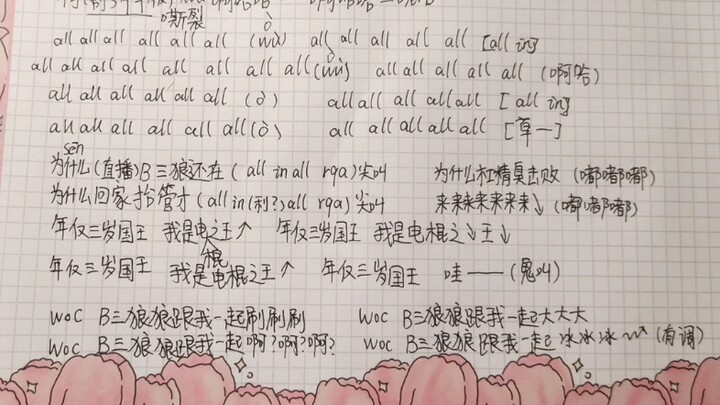 嘶裂
all all all all all all (ùù) all all all all all [all in]
all all all all all all all all all (ùù) all all all all all (啊哈)
all all all all all all (ò) all all all all all [all in]
all all all all all all (ò) all all all all all [草一]
sen
为什么(直播)B三狼还在(all in all rqa)尖叫 为什么杠精臭击败(嘟嘟嘟嘟)
为什么回家抬管才(all in(利?)all rqa)尖叫 来来来来来来来↓(嘟嘟嘟)
年仅三岁国王 我是电之王↑ 年仅三岁国王 我是电棍之↓王↓
棍
年仅三岁国王 我是电棍之王↑ 年仅三岁国王 哇——(鬼叫)
woc B三狼狼跟我一起刷刷刷 woc B三狼狼跟我一起大大大
woc B三狼狼跟我一起啊?啊?啊? woc B三狼狼跟我一起冰冰冰(有调)